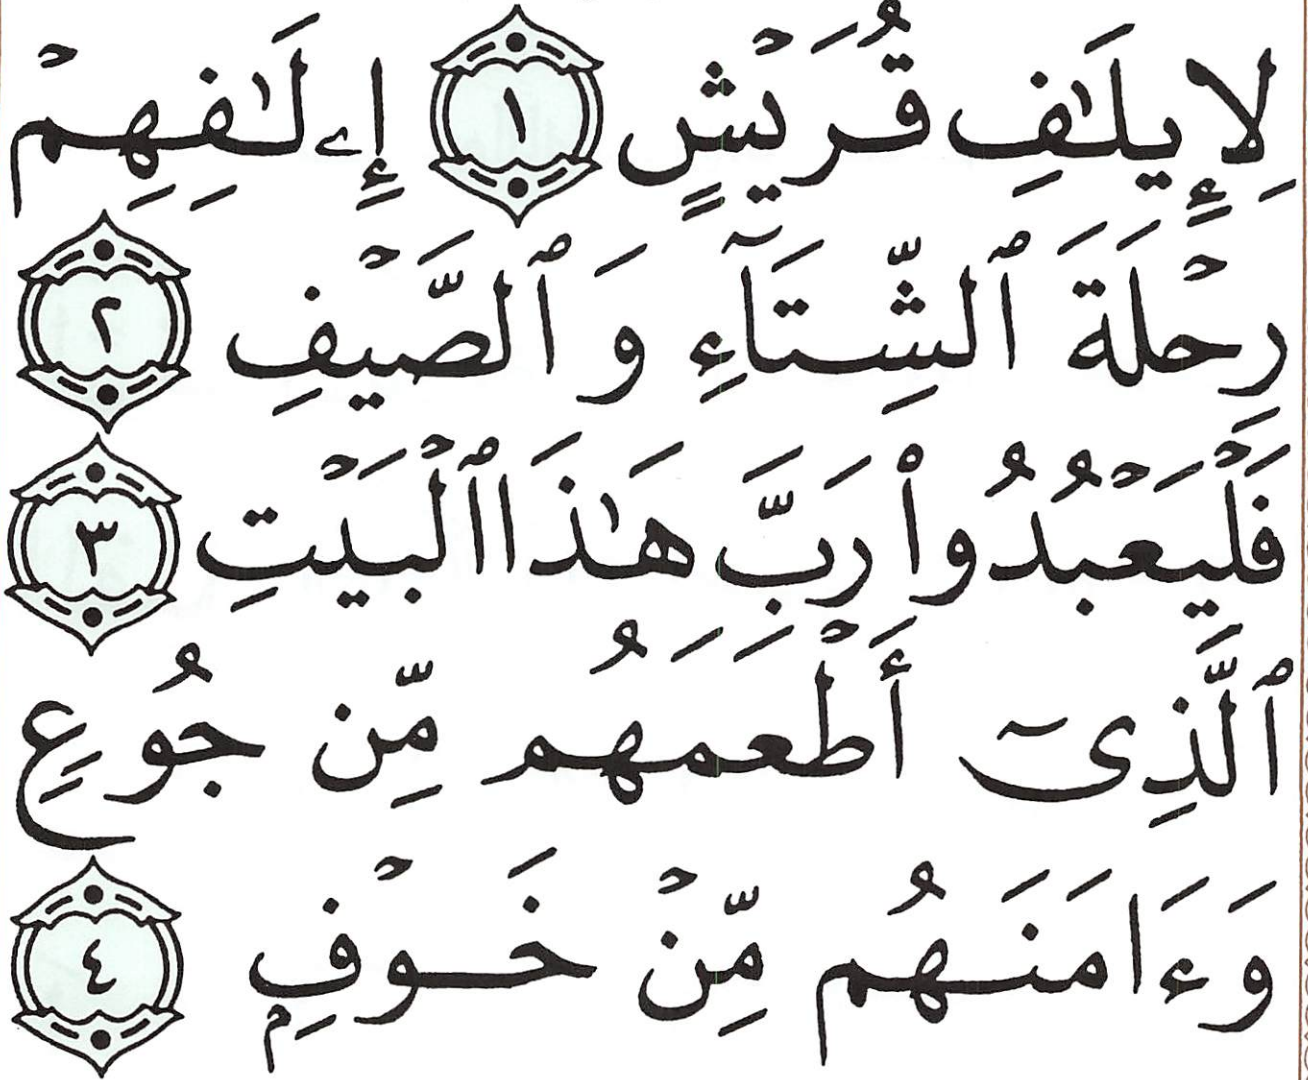 لِإِيلَـٰفِ قُرَيْشٍ ١ إِۦلَـٰفِهِمْ
رِحْلَةَ ٱلشِّتَآءِ وَٱلصَّيْفِ ٢
فَلْيَعْبُدُوا۟ رَبَّ هَـٰذَا ٱلْبَيْتِ ٣
ٱلَّذِىٓ أَطْعَمَهُم مِّن جُوعٍ
وَءَامَنَهُم مِّنْ خَوْفٍۭ ٤